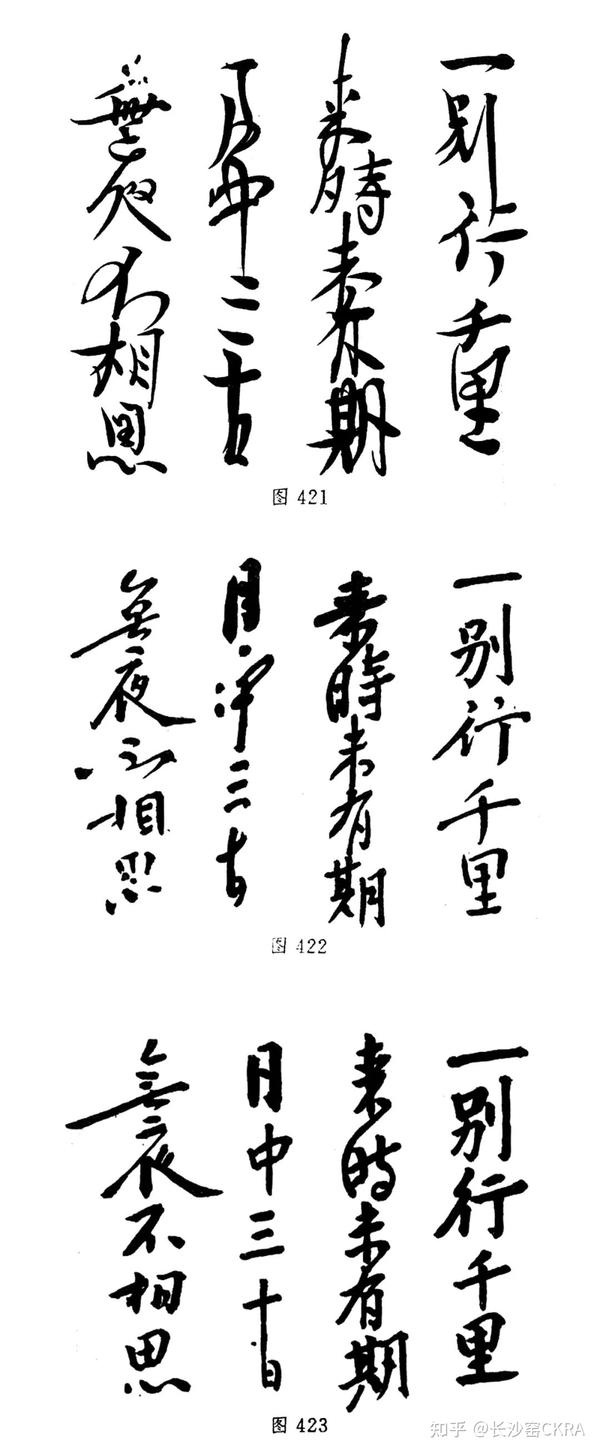 一别行千里
来時未有期
月中三十日
無夜不相思
图 421
一别行千里
来時未有期
月中三十日
無夜不相思
图 422
一别行千里
来時未有期
月中三十日
無夜不相思
图 423
知乎 @长沙窑CKRA